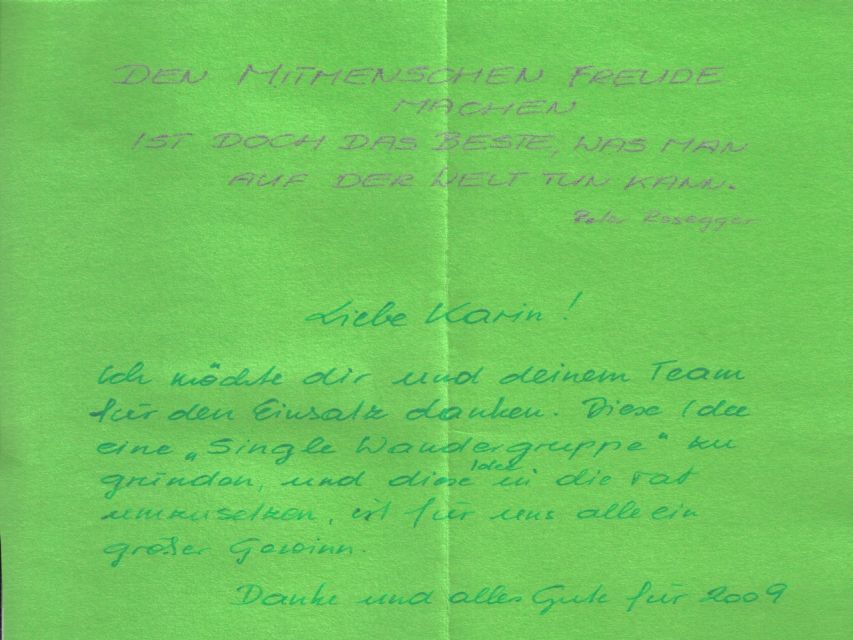 DEN MITMENSCHEN FREUDE
MACHEN
IST DOCH DAS BESTE, WAS MAN
AUF DER WELT TUN KANN.
Peter Rosegger
Liebe Karin!
Ich möchte dir und deinem Team
für den Einsatz danken. Diese Idee
eine „Single Wandergruppe" zu
gründen, und diese Idee in die tat
umzusetzen, ist für uns alle ein
großer Gewinn.
Danke und alles Gute für 2009